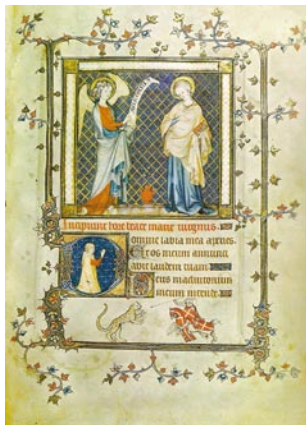 Incipiunt hore beate marie virginis.
Domine labia mea aperies.
Et os meum annunci
abit laudem tuam.
Deus in adiutorium
meum intende.